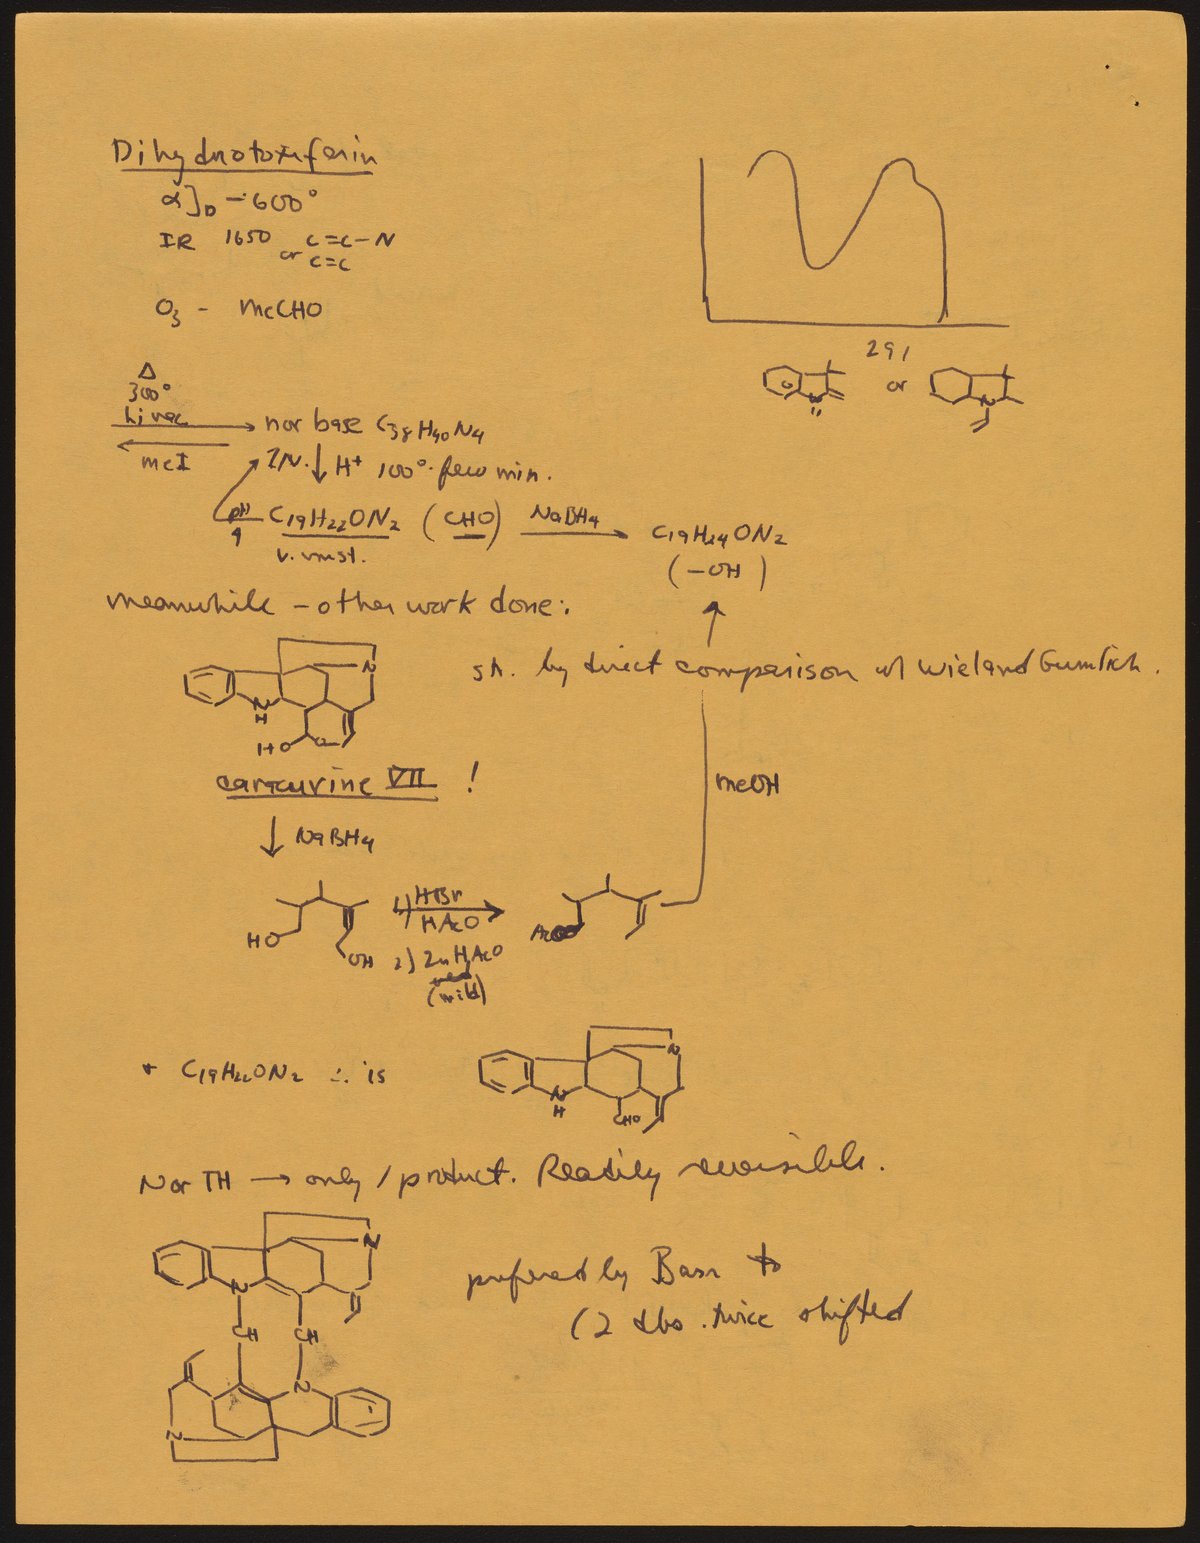 Dihydrotoxiferin
α]D –600°
IR 1650 C=C–N
or C=C
O3 - MeCHO
291
or
N
N
Δ
300°
hi vac
nor base C38H40N4
MeI
2N. ↓ H+ 100°. few min.
pH
C19H22ON2 (CHO) NaBH4
C19H24ON2
v. unst.
(–OH)
meanwhile – other work done:
N
N
H
HO O
sh. by direct comparison w/ Wieland Gumlich.
caracurine VII !
MeOH
↓ NaBH4
1) HBr
HAcO
HO
OH
2) Zn HAcO
(mild)
+ C19H22ON2 ∴ is
N
N
H
CHO
Nor TH → only 1 product. Readily reversible.
N
N
CH CH
N
N
prefered by Basn to
(2 dbs. twice shifted